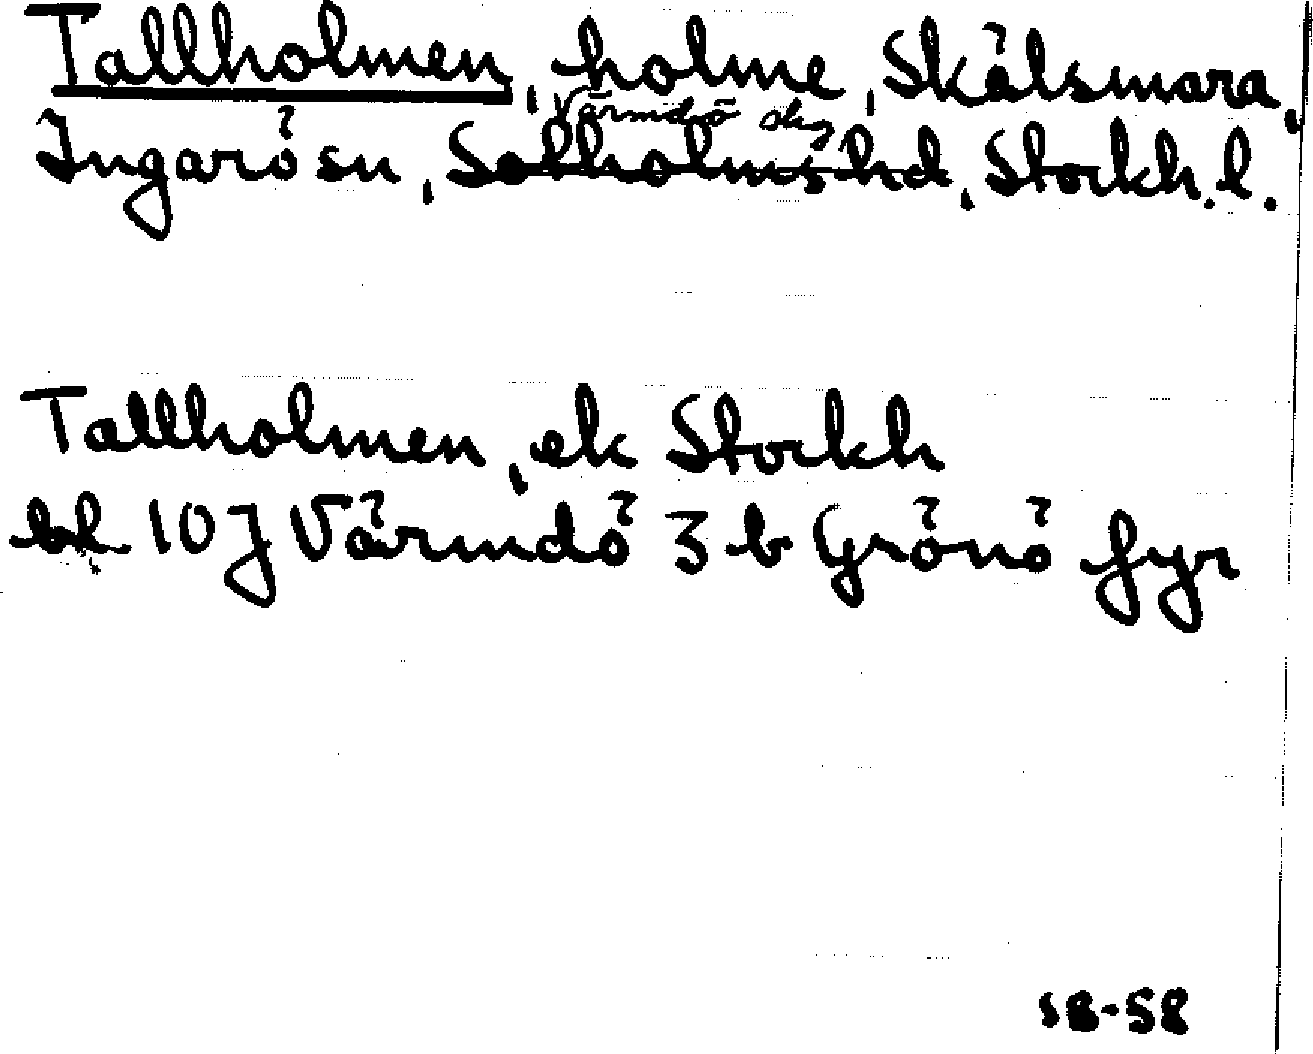 Tallholmen, holme, Skälsmara,
Värmdö skg
Ingarö sn, Solholms hd, Stockh. l.
Tallholmen, ek Stockh
bl 10J Värmdö 3 b Grönö fyr
S8-58